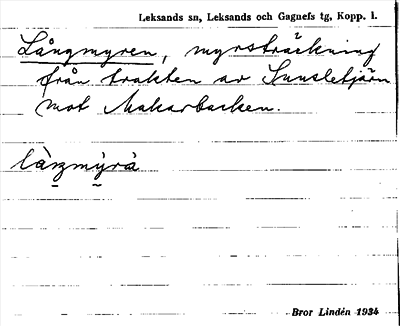 Leksands sn, Leksands och Gagnefs tg, Kopp. l.
Långmyren, myrsträckning
från trakten av Sunsletjärn
mot Makarbacken.
làŋmỳrà
Bror Lindén 1934